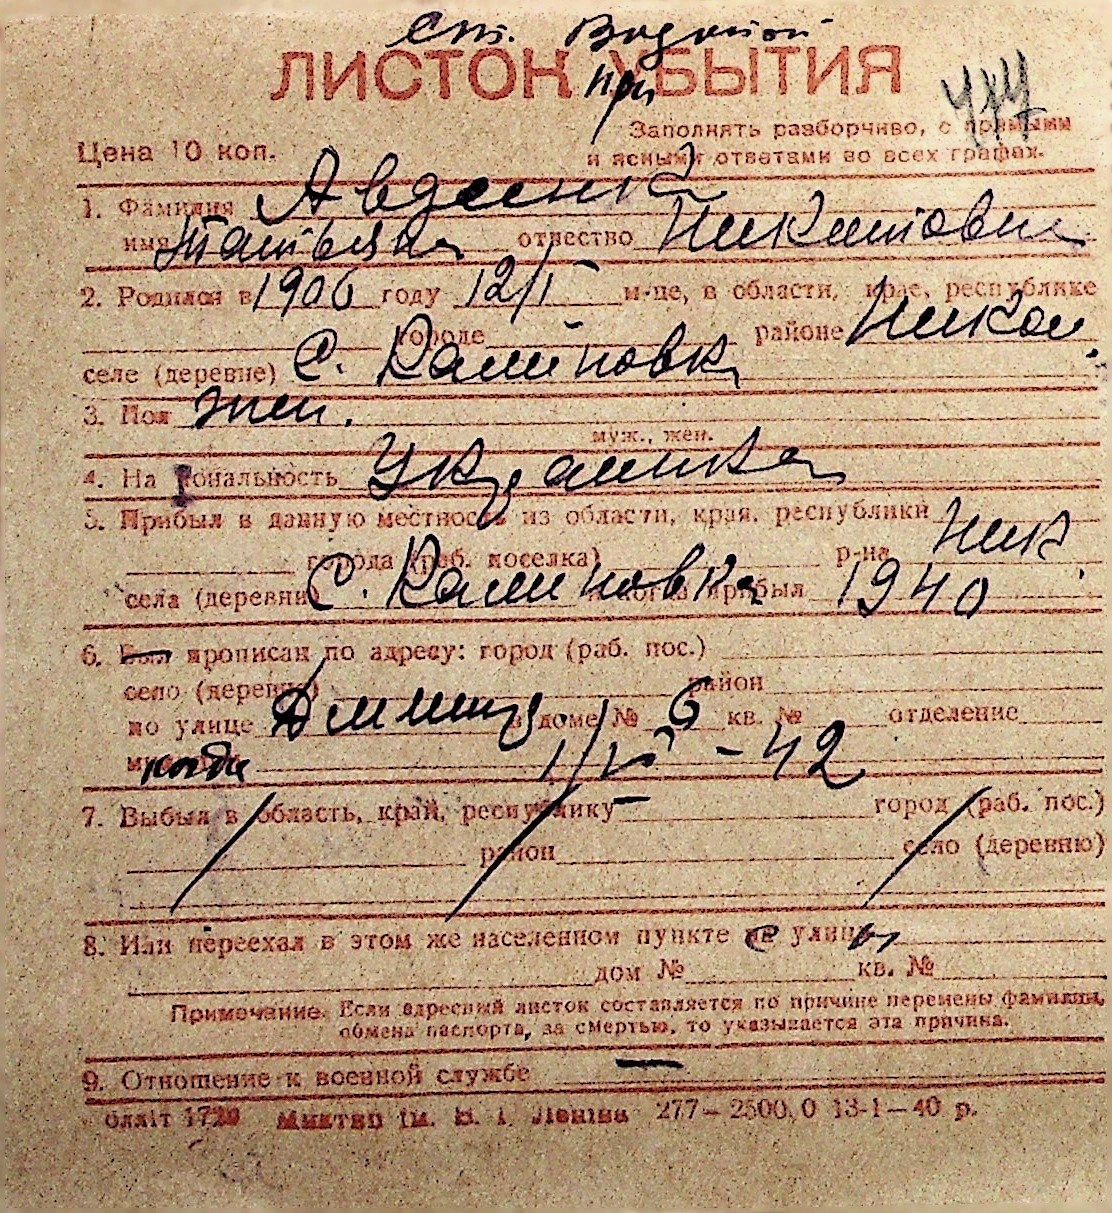 ст. Водопой
ЛИСТОК УБЫТИЯ
при
Заполнять разборчиво, с прямыми
Цена 10 коп.
и ясными ответами во всех графах.
1. Фамилия Авдеенко
имя Татьяна отчество Никитовна
2. Родился в 1906 году 12/I м-це, в области, крае, республике
городе районе Никол.
селе (деревне) С. Калиновка
3. Пол жен.
муж., жен.
4. Национальность Украинка
5. Прибыл в данную местность из области, края, республики
города (раб. поселка) р-на Ник
села (деревни) С. Калиновка и когда прибыл 1940
6. Был прописан по адресу: город (раб. пос.)
село (деревне) район
по улице в доме № 6 кв. № отделение
-42
7. Выбыл в область, край, республику — город (раб. пос.)
район село (деревню)
8. Или переехал в этом же населенном пункте с улицы
дом № кв. №
Примечание. Если адресный листок составляется по причине перемены фамилии,
обмена паспорта, за смертью, то указывается эта причина.
9. Отношение к военной службе —
ім. В. І. Леніна 277–2500.0 13-1–40 р.